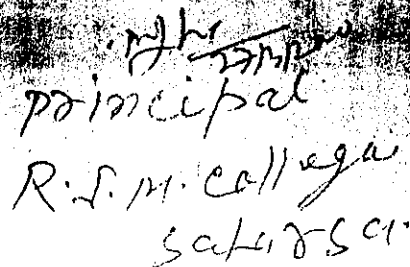 Principal
R.J.M. College
Saharsa.